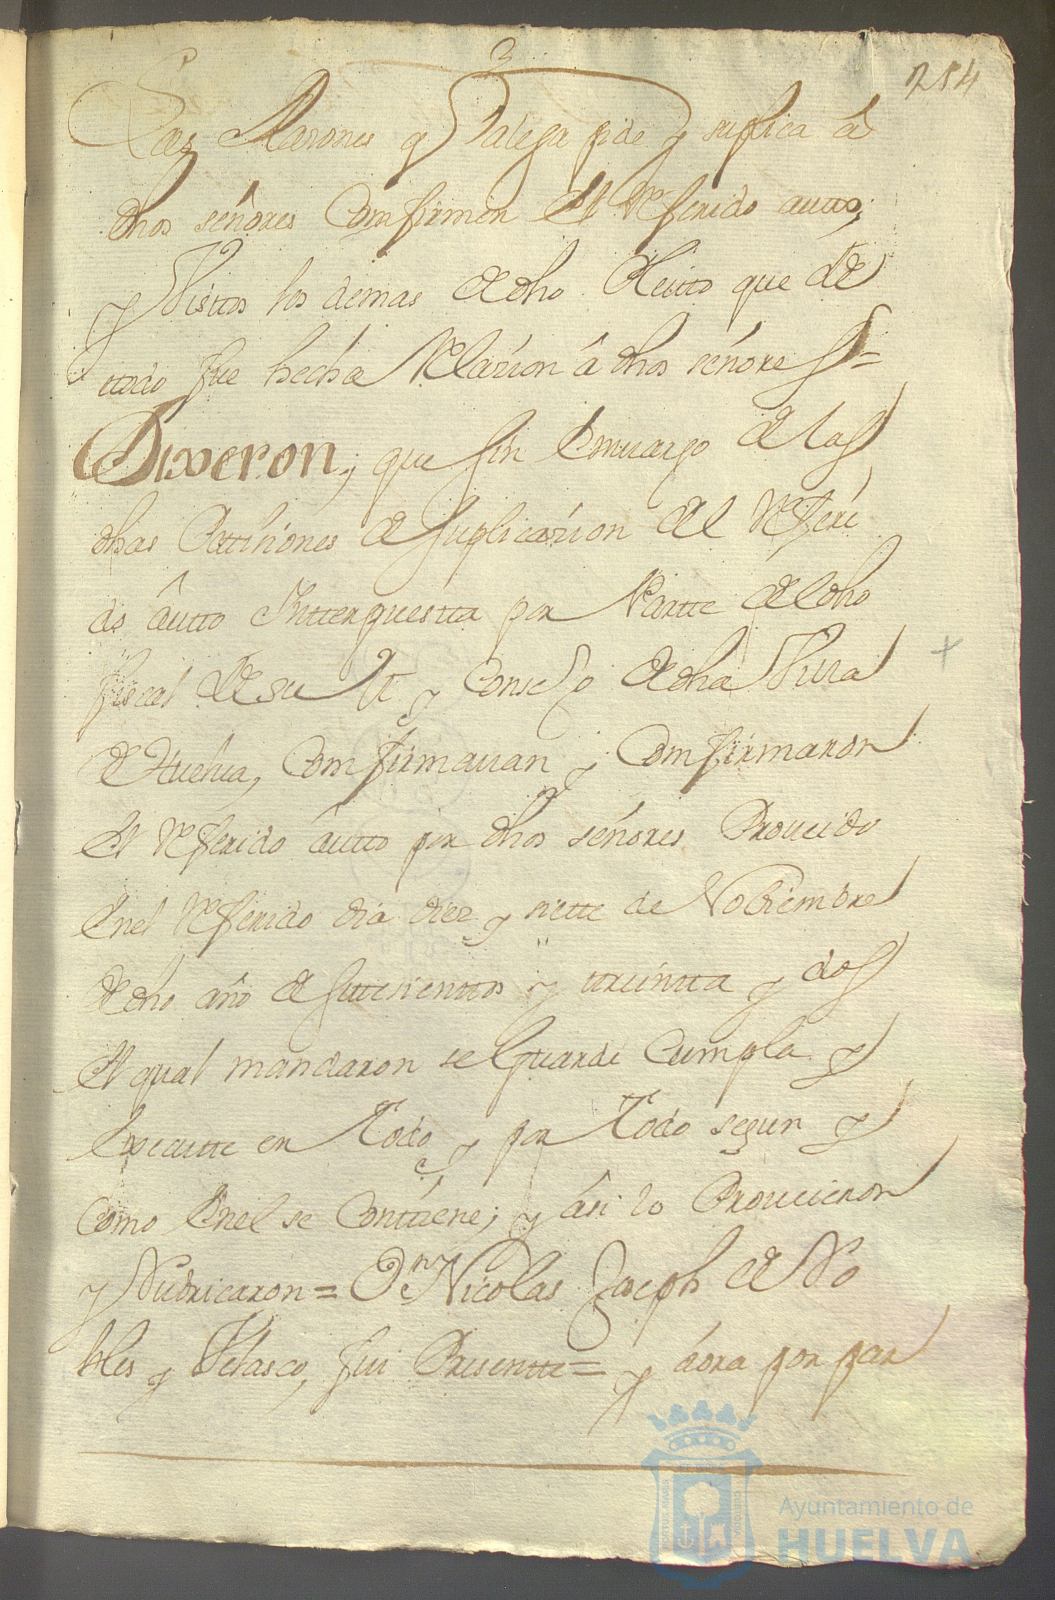 284
Las Razones q̃ Desalega pide y suplica â
dhos señores Comfirmen El Referido autto,
y Visttos los demas de dho Pleitto que de
ttodo fue hecha Relazion â dhos señores=
Dixeron, que sin Embargo de las
dhas Pettiziones de suplicazion del Referi
do âutto Intterpuestta por Partte del dho
fiscal De su M. y Consejo de dha Villa
de Huelva, Comfirmavan y Comfirmaron
El Referido âutto por dhos señores Proveido
Enel Referido dia diez y siette de Nobiembre
de dho año de settezienttos y treintta y dos
El qual mandaron se Guarde Cumpla y
Execute en Todo, y por Todo segun y
como Enel se Contiene; y âsi lo Proveieron
y Rubricaron = Dn. Nicolas Joseph de Ro
bles y Velasco, fui Presentte = y âora por par
Ayuntamiento de
HUELVA